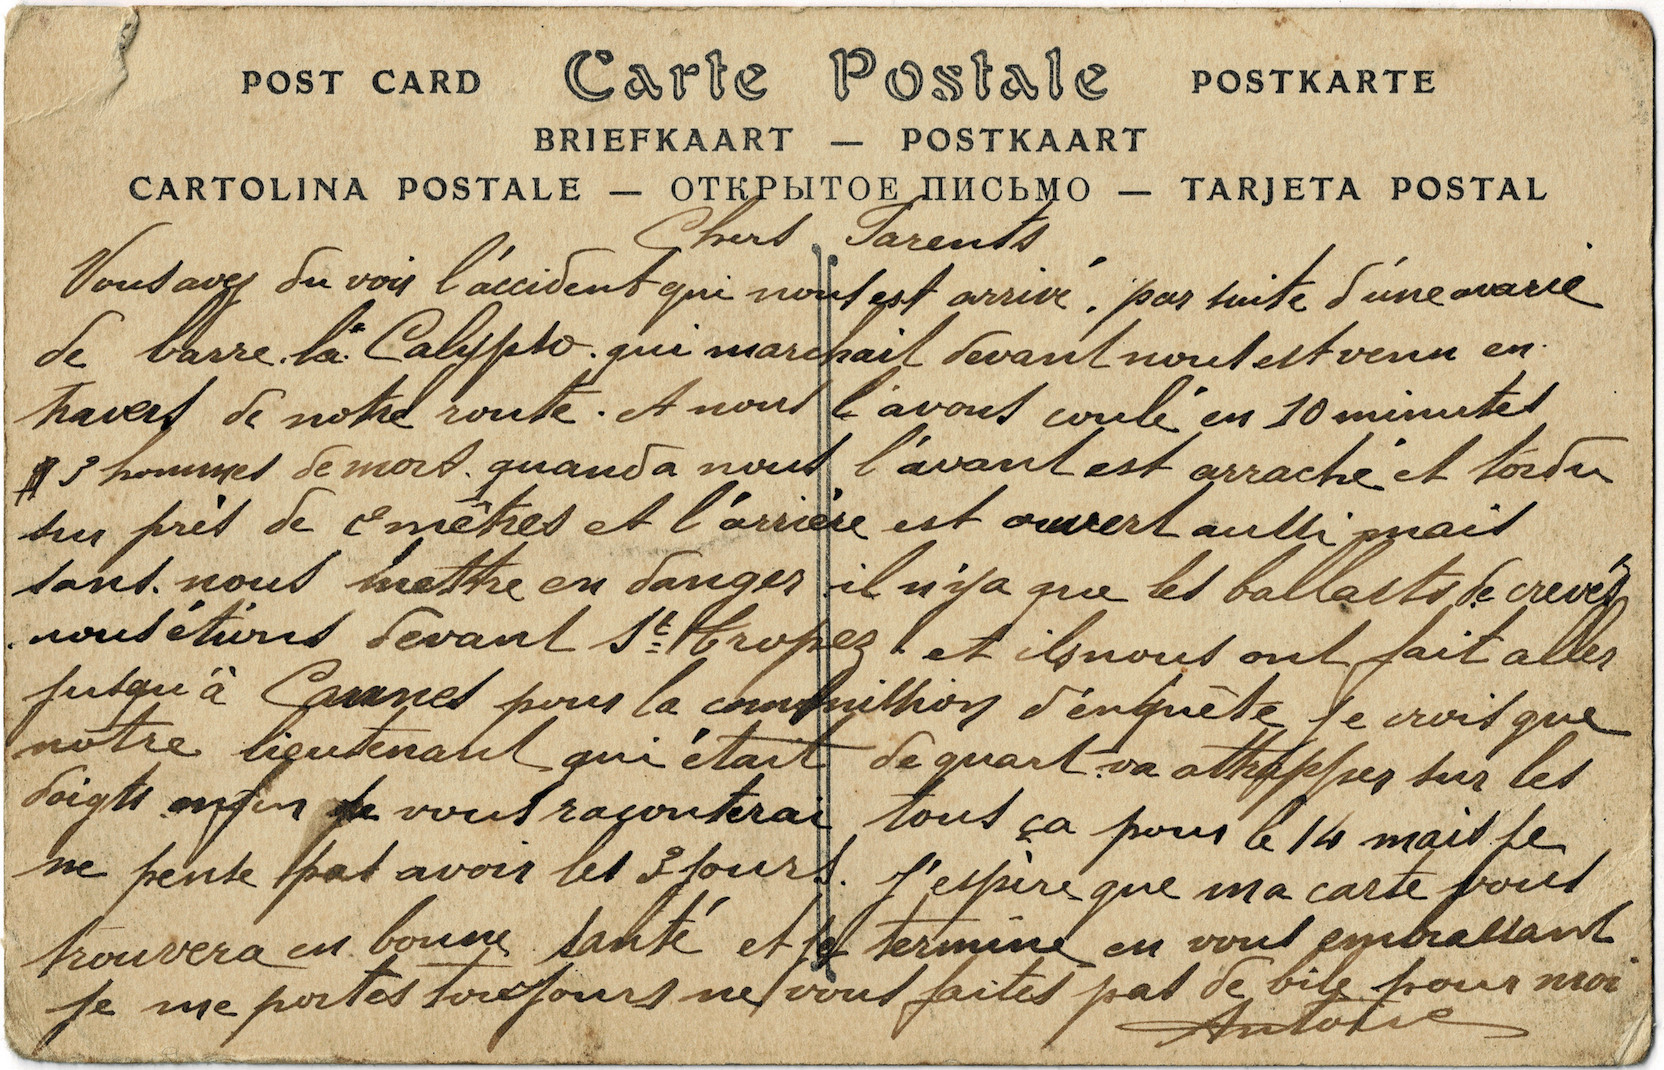 POST CARD Carte Postale POSTKARTE
BRIEFKAART — POSTKAART
CARTOLINA POSTALE — ОТКРЫТОЕ ПИСЬМО — TARJETA POSTAL
Chers Parents
Vous avez du voir l'accident qui nous est arrivé, par suite d'une avarie
de barre. la Calypso. qui marchait devant nous est venu en
travers de notre route. et nous l'avons coulé en 10 minutes
3 hommes de mort. quand a nous l'avant est arraché et tordu
sur près de 2 mêtres et l'arrière est ouvert aussi mais
sans nous mettre en danger il n'y a que les ballasts de crevés
nous étions devant St Tropez. et ils nous ont fait aller
jusqu'à Cannes pour la commission d'enquête je crois que
notre lieutenant qui était de quart va attrapper sur les
doigts enfin je vous raconterai tous ça pour le 14 mais je
ne pense pas avoir les 3 jours. J'espère que ma carte vous
trouvera en bonne santé et je termine en vous embrassant
je me portes toujours ne vous faites pas de bile pour moi
Antoine